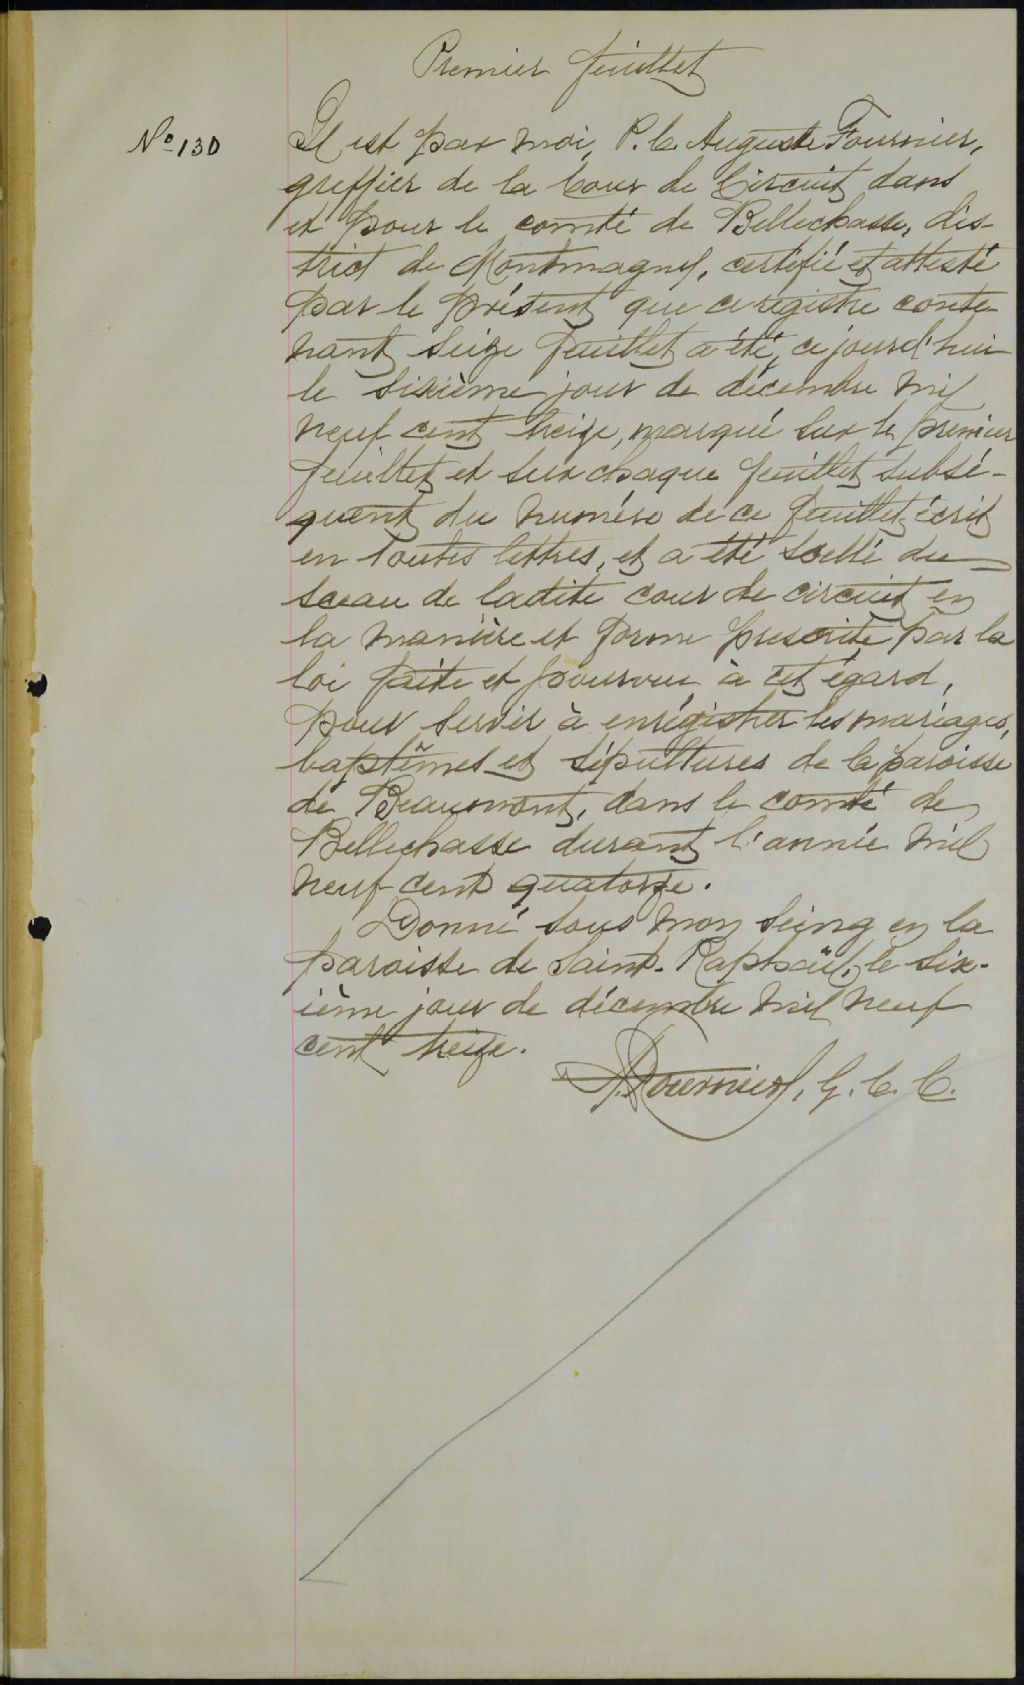 Premier feuillet
No 130
Il est par moi, P. C. Auguste Fournier,
greffier de la Cour de Circuit dans
et pour le comté de Bellechasse, dis-
trict de Montmagny, certifié et attesté
par le présent que ce registre conte-
nant seize feuillet a été, ce jourd'hui
le sixième jour de décembre mil
neuf cent treize, marqué sur le premier
feuillet et sur chaque feuillet subsé-
quent du numéro de ce feuillet, écrit
en toutes lettres, et a été scellé du
sceau de ladite cour de circuit en
la manière et forme prescrite par la
loi faite et pourvue à cet égard,
pour servir à enrégistrer les mariages,
baptêmes et sépultures de la paroisse
de Beaumont, dans le comté de
Bellechasse durant l'année mil
neuf cent quatorze.
Donné sous mon seing en la
paroisse de Saint-Raphaël, le six-
ième jour de décembre mil neuf
cent treize.
A. Fournier, G. C. C.